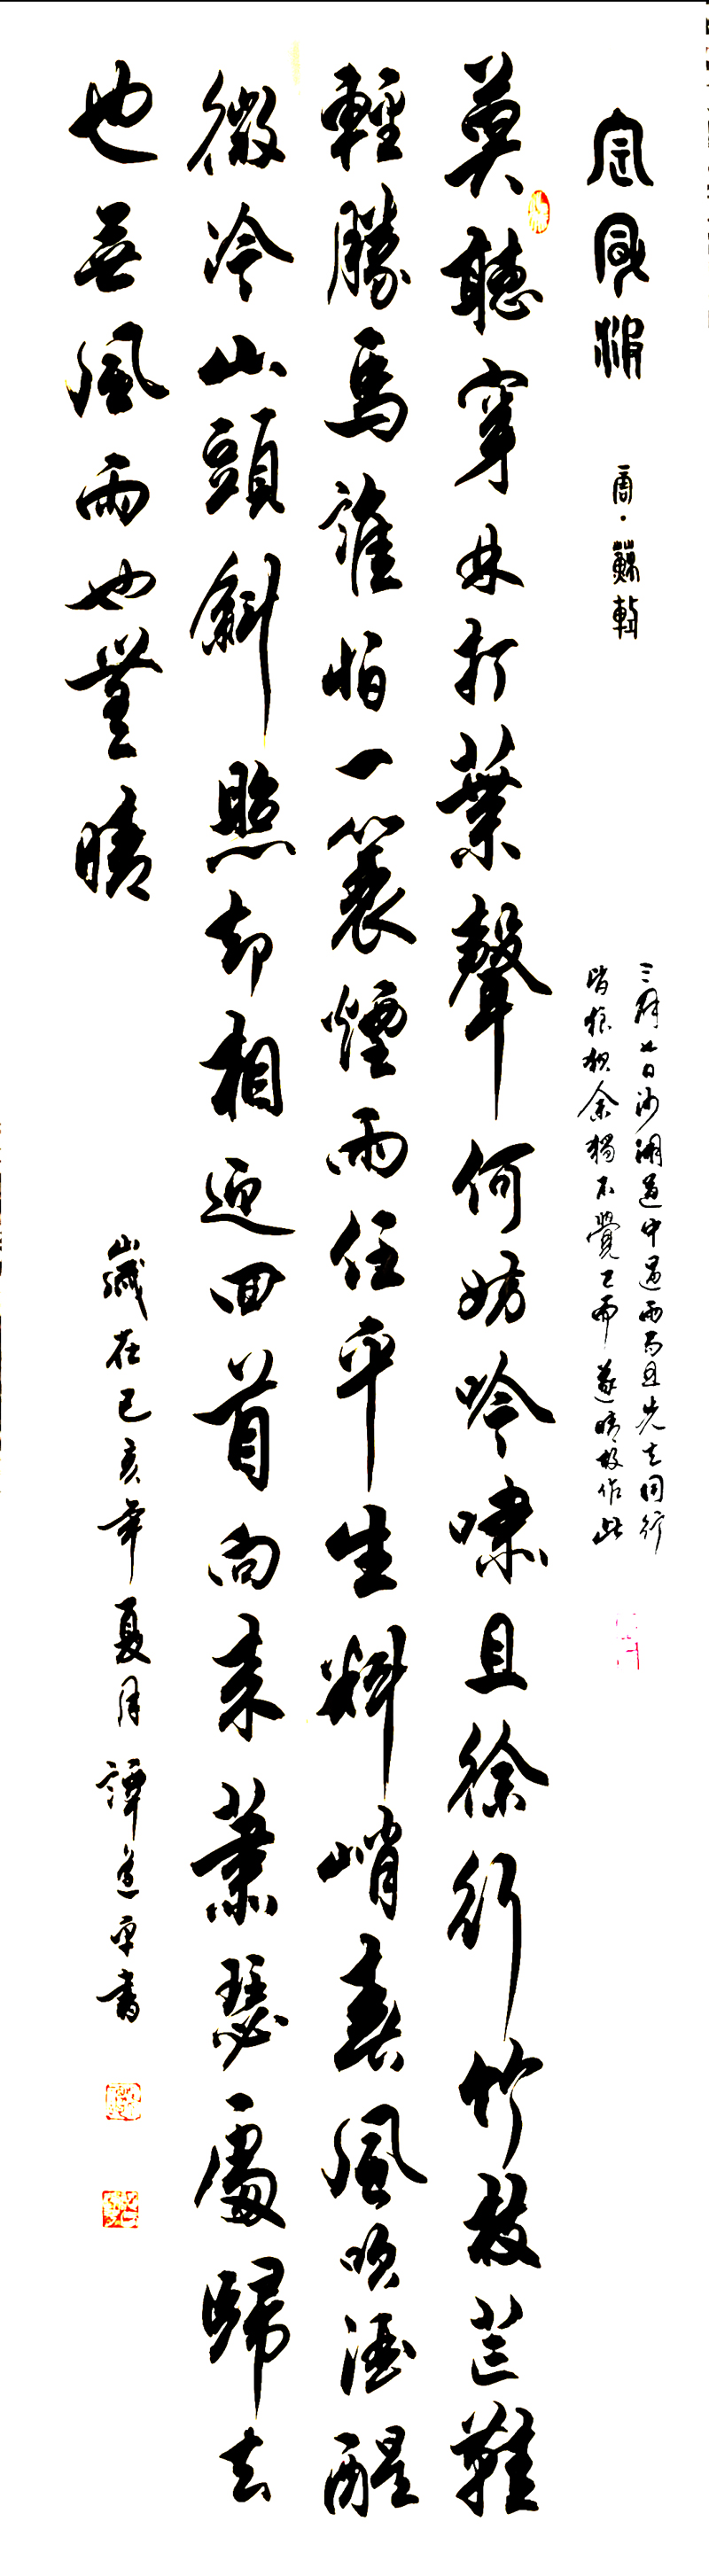 定風波
蘇軾
三月七日沙湖道中遇雨雨具先去同行
皆狼狽余獨不覺已而遂晴故作此
莫聽穿林打葉聲何妨吟嘯且徐行竹杖芒鞋
輕勝馬誰怕一蓑煙雨任平生料峭春風吹酒醒
微冷山頭斜照却相迎回首向来蕭瑟處歸去
也無風雨也無晴
歲在己亥年夏月譚道平書